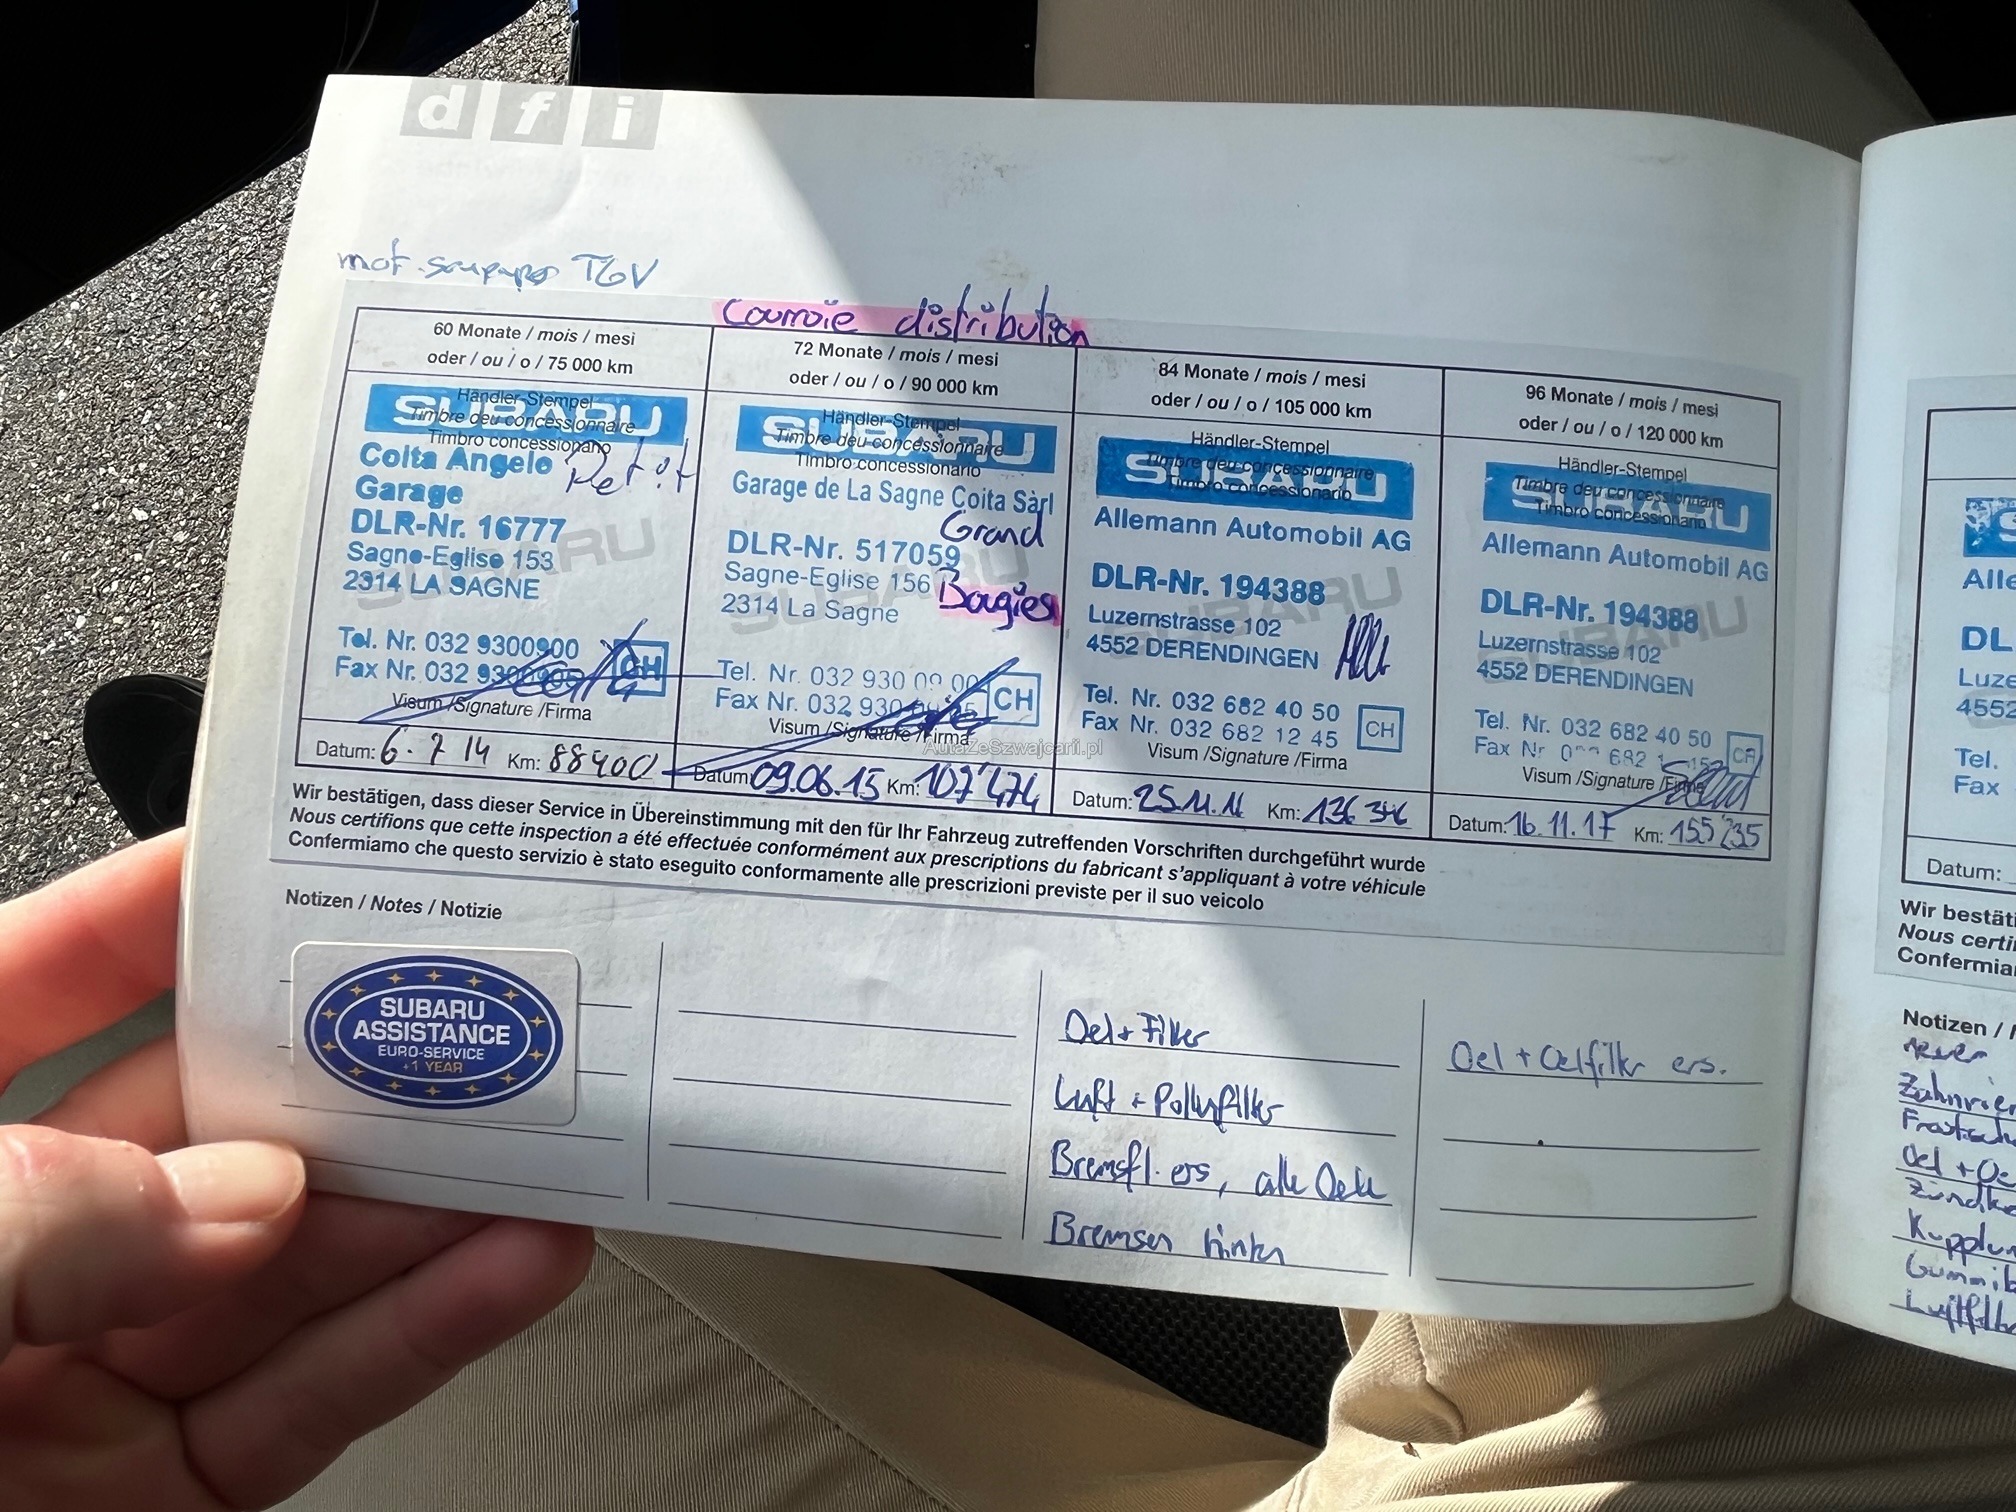 d f i
mot. soupapes TGV
Courroie distribution
60 Monate / mois / mesi
oder / ou / o / 75 000 km
SUBARU
Händler-Stempel
Timbre deu concessionnaire
Timbro concessionario
Coita Angelo
Petit
Garage
DLR-Nr. 16777
Sagne-Eglise 153
2314 LA SAGNE
Tel. Nr. 032 9300900
Fax Nr. 032
CH
Visum /Signature /Firma
Datum: 6.7 14 Km: 88400
72 Monate / mois / mesi
oder / ou / o / 90 000 km
SUBARU
Händler-Stempel
Timbre deu concessionnaire
Timbro concessionario
Garage de La Sagne Coita Sàrl
Grand
DLR-Nr. 517059
Sagne-Eglise 156
Bougies
2314 La Sagne
Tel. Nr. 032 930 09 00
Fax Nr. 032 930
CH
Visum /Signature /Firma
Datum: 09.06.15 Km: 107'474
84 Monate / mois / mesi
oder / ou / o / 105 000 km
Händler-Stempel
Timbre deu concessionnaire
Timbro concessionario
SUBARU
Allemann Automobil AG
DLR-Nr. 194388
Luzernstrasse 102
4552 DERENDINGEN
Tel. Nr. 032 682 40 50
Fax Nr. 032 682 12 45
CH
Visum /Signature /Firma
Datum: 25.11.16 Km: 136 346
96 Monate / mois / mesi
oder / ou / o / 120 000 km
Händler-Stempel
Timbre deu concessionnaire
Timbro concessionario
SUBARU
Allemann Automobil AG
DLR-Nr. 194388
Luzernstrasse 102
4552 DERENDINGEN
Tel. Nr. 032 682 40 50
Fax Nr 682
Visum /Signature /Firma
Datum: 16.11.17 Km: 155'235
AutaZeSzwajcarii.pl
Wir bestätigen, dass dieser Service in Übereinstimmung mit den für Ihr Fahrzeug zutreffenden Vorschriften durchgeführt wurde
Nous certifions que cette inspection a été effectuée conformément aux prescriptions du fabricant s'appliquant à votre véhicule
Confermiamo che questo servizio è stato eseguito conformamente alle prescrizioni previste per il suo veicolo
Notizen / Notes / Notizie
SUBARU
ASSISTANCE
EURO-SERVICE
+1 YEAR
Oel + Filter
Luft + Pollenfilter
Bremsfl. ers, alle Oele
Bremsen hinten
Oel + Oelfilter ers.
Alle
DL
Luze
4552
Tel.
Fax
Datum:
Wir bestäti
Nous certi
Confermiam
Notizen /
Zahnrie
Frostsch
Oel + Oe
Zündke
Kupplun
Gummib
Luftfilte